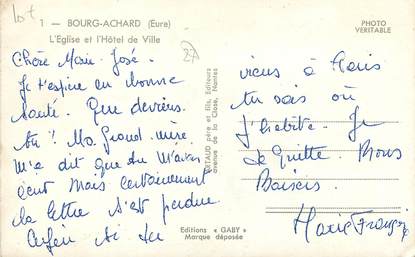 lot
1 — BOURG-ACHARD (Eure)
L'Eglise et l'Hôtel de Ville
PHOTO
VERITABLE
27
Chère Marie-José.
Je t'espère en bonne
santé. Que deviens
tu! Ma Grand-mère
m'a dit que tu m'avais
écrit mais certainement
la lettre s'est perdue
Enfin si tu
viens à Paris
tu sais où
J'habite. Je
te quitte. Bons
Baisers
Marie Françoise
ARTAUD père et fils, Editeurs
avenue de la Close, Nantes
Editions « GABY »
Marque déposée